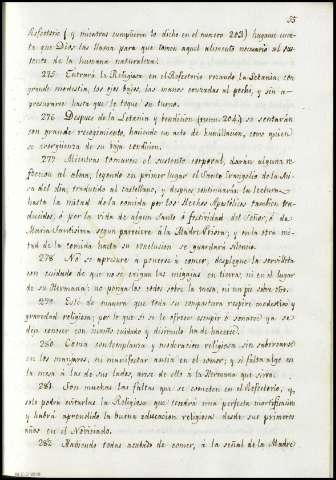 55
Refectorio (y mientras cumplieren lo dicho en el numero 203) hagase cuen-
ta que Dios las llama para que tomen aquel alimento necesario al sus-
tento de la humana naturaleza.
275 Entrará la Religiosa en el Refectorio rezando la Letania; con
grande modestia, los ojos bajos, las manos cerradas al pecho, y sin a-
presurarse hasta que le toque su turno.
276 Despues de la Letania y bendicion (num. 204) se sentarán
con grande recogimiento, haciendo un acto de humillacion, como quien
se avergüenza de su baja condicion.
277 Mientras tomaren el sustento corporal, darán alguna re-
feccion al alma, leyendo en primer lugar el Santo Evangelio de la Mi-
sa del dia, traducido al castellano, y despues continuarán la lectura
hasta la mitad de la comida por los Hechos Apostolicos tambien tra-
ducidos, ó por la vida de algun Santo ó festividad del Señor, ó de
Maria Santisima segun pareciere á la Madre Priora; y en la otra mi-
tad de la comida hasta su conclusion se guardará silencio.
278 No se apresure á ponerse á comer, despliegue la servilleta
con cuidado de que no se caigan las migajas en tierra, ni en el lugar
de su Hermana; no ponga los codos sobre la mesa, ni un pie sobre otro.
279 Esté de manera que toda su compostura respire modestia y
gravedad religiosa; por lo que si se le ofrece escupir ó sonarse ya se
deja conocer con cuanto cuidado y disimulo ha de hacerse.
280 Coma con templanza y moderacion religiosa sin saborearse
en los manjares, ni manifestar ansia en el comer; y si falta algo en
la mesa á las de sus lados, avise de ello á la Hermana que sirva.
281 Son muchas las faltas que se cometen en el Refectorio, y
solo podrá evitarlas la Religiosa que tendrá una perfecta mortificacion
y habrá aprendido la buena educacion religiosa desde sus primeros
años en el Noviciado.
282 Habiendo todas acabado de comer, á la señal de la Madre